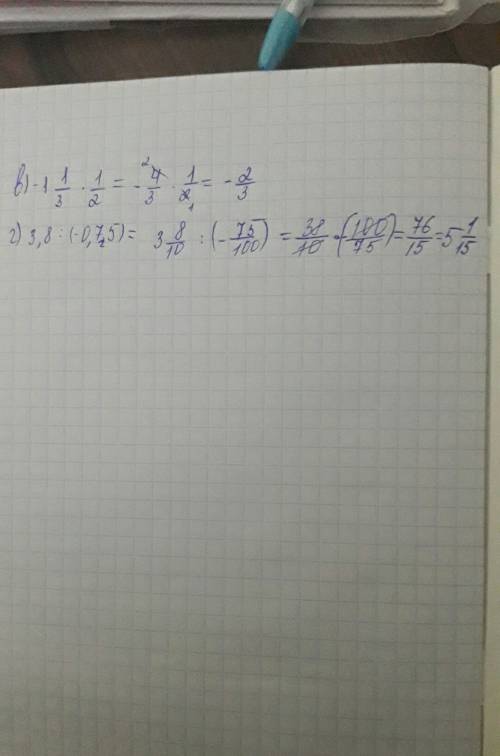 в) -1 1/3 · 1/2 = - 4/3 · 1/2 = - 2/3
г) 3,8 : (-0,75) = 3 8/10 : (- 75/100) = 38/10 · (100/75) = 76/15 = 5 1/15